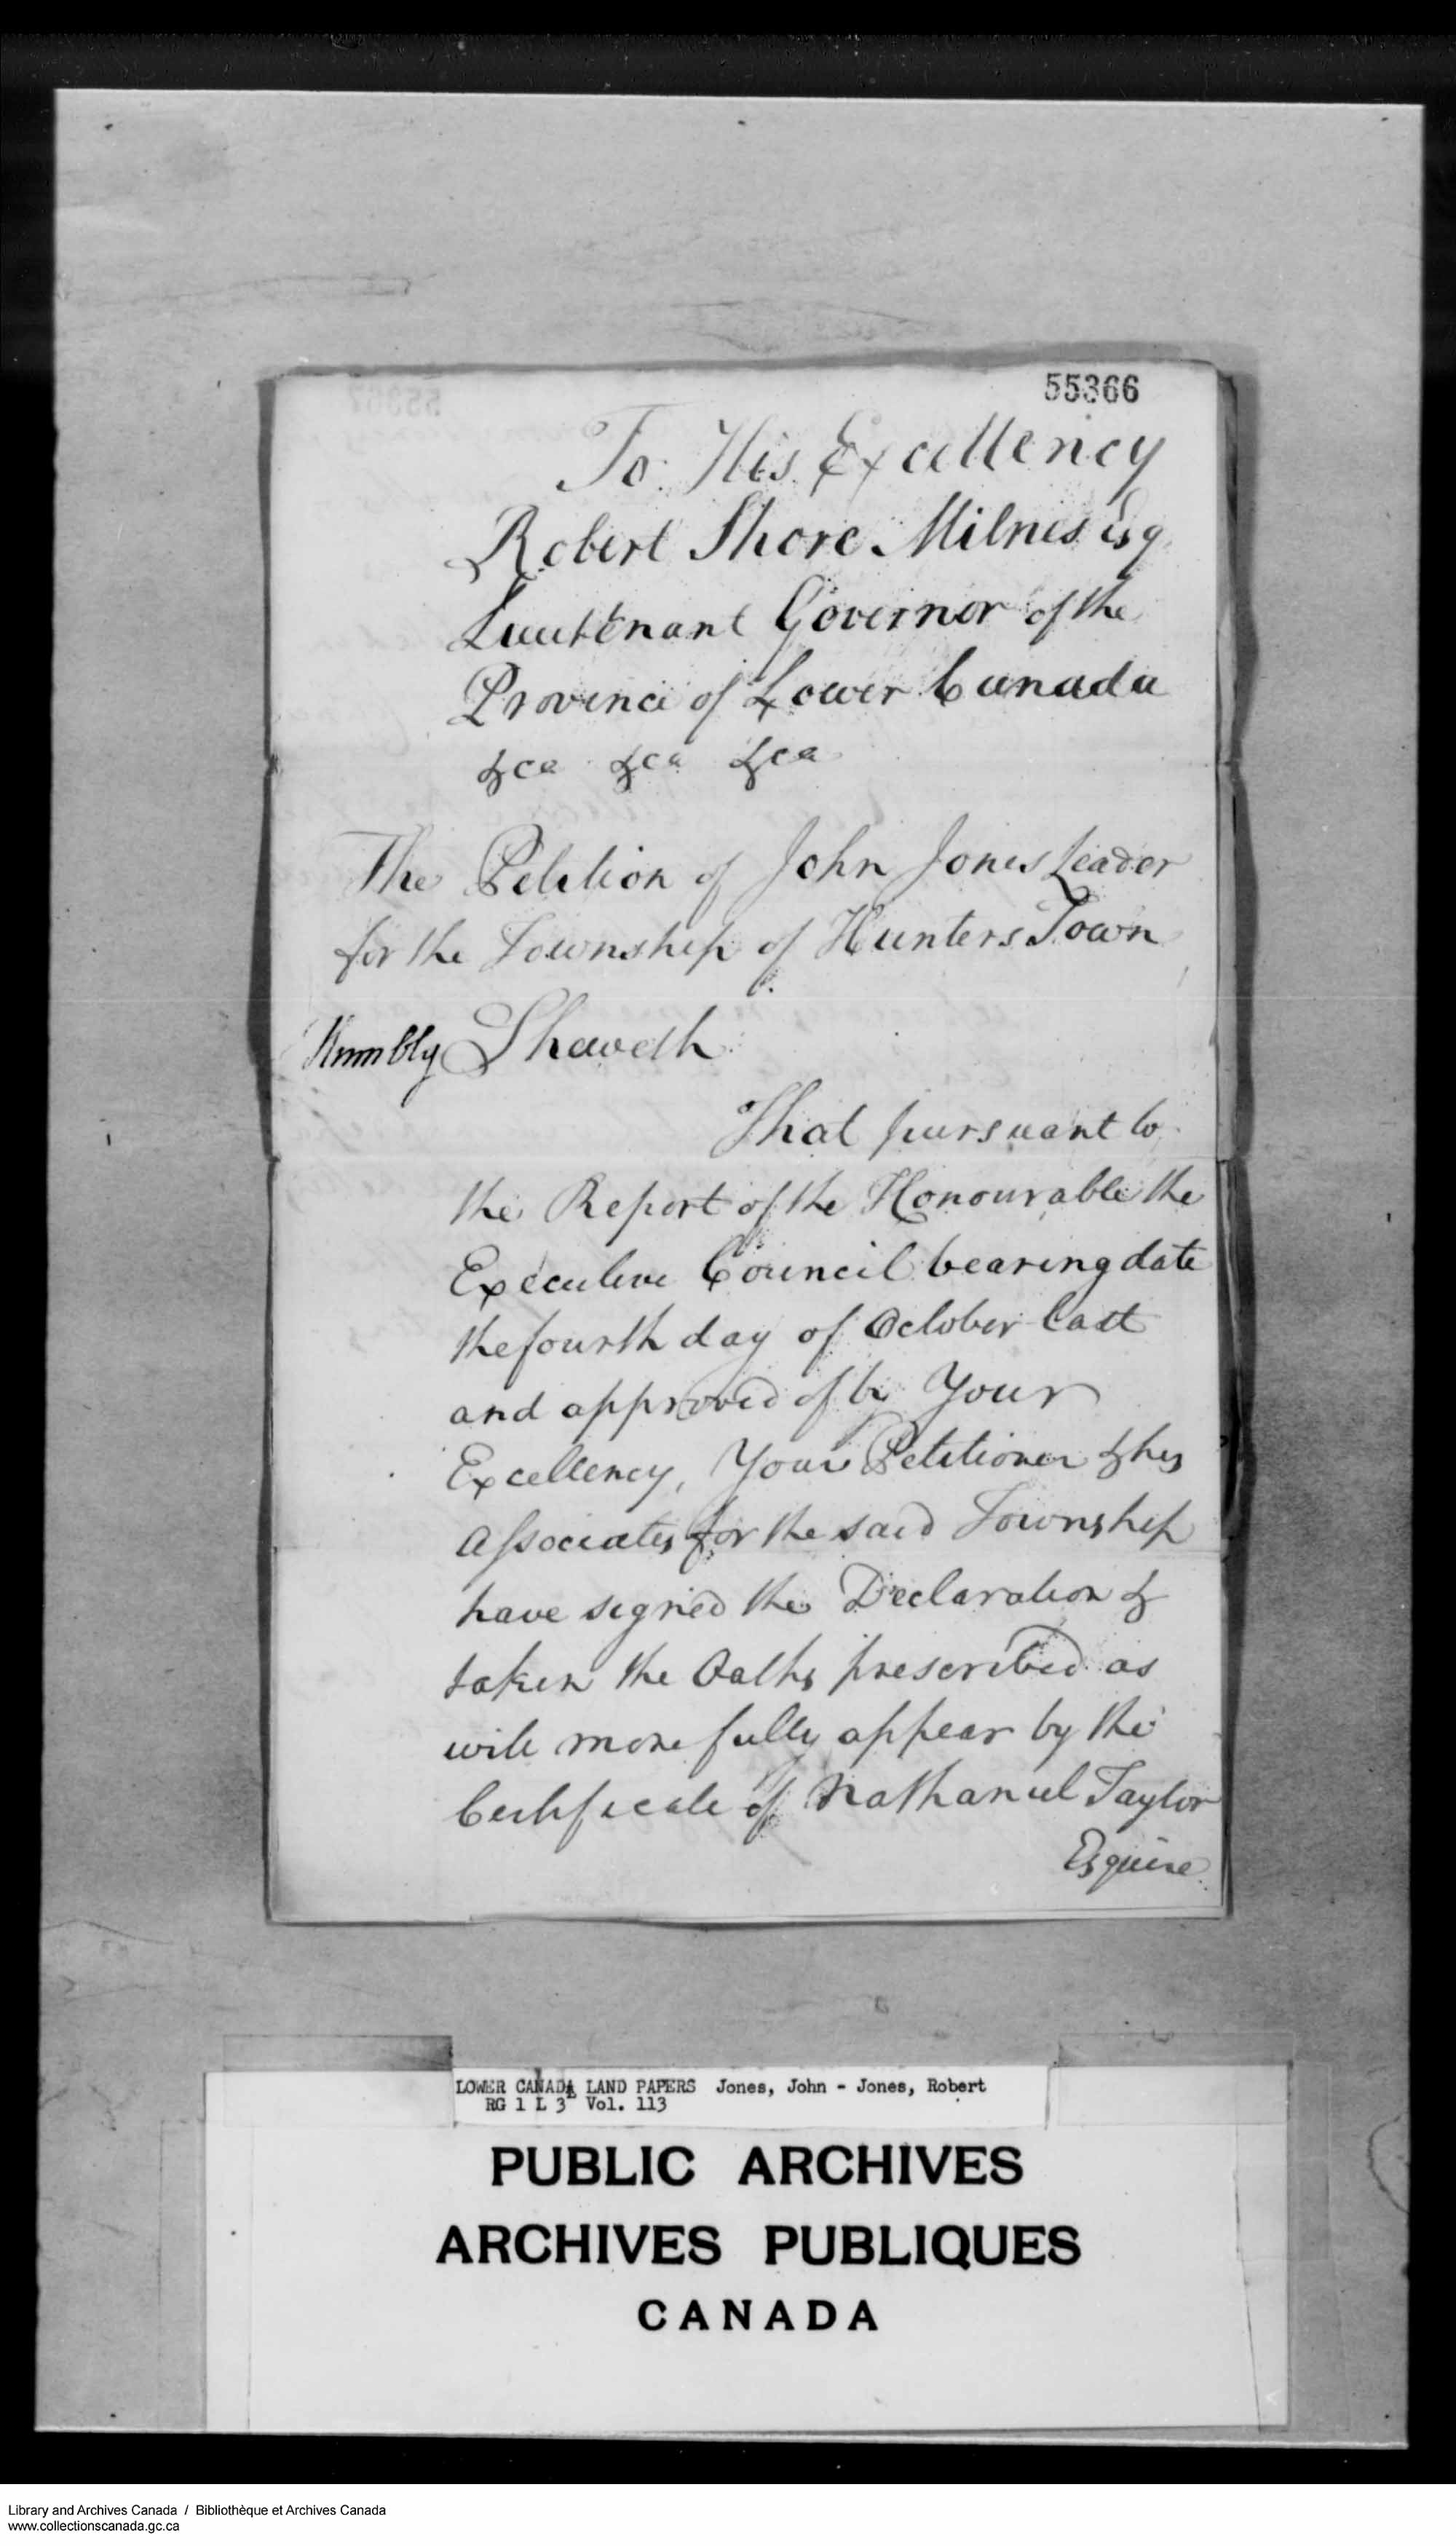 55366
To His Excellency
Robert Shore Milnes Esq
Lieutenant Governor of the
Province of Lower Canada
&ca &ca &ca
The Petition of John Jones Leader
for the Township of Hunters Town
Humbly Sheweth
That pursuant to
the Report of the Honourable the
Executive Council bearing date
the fourth day of October last
and approved of by Your
Excellency, Your Petitioner & his
Associates for the said Township
have signed the Declaration &
taken the Oaths prescribed as
will more fully appear by the
Certificate of Nathaniel Taylor
Esquire
LOWER CANADA LAND PAPERS Jones, John - Jones, Robert
RG 1 L 3 Vol. 113
PUBLIC ARCHIVES
ARCHIVES PUBLIQUES
CANADA
Library and Archives Canada / Bibliothèque et Archives Canada
www.collectionscanada.gc.ca